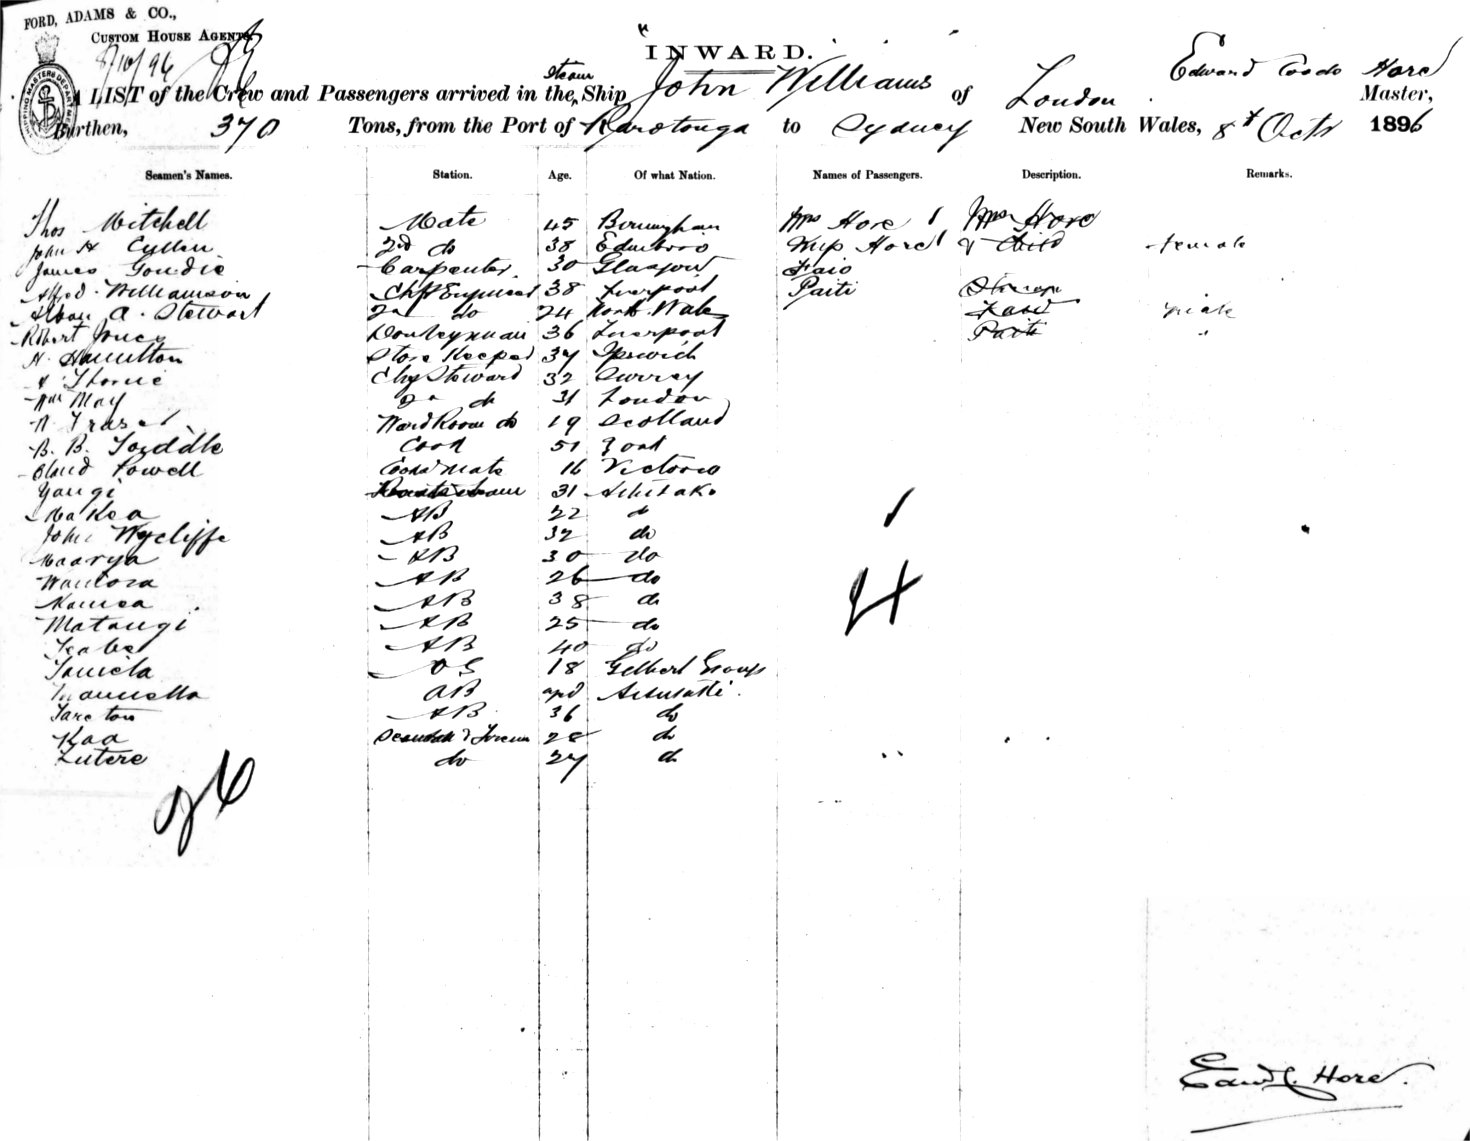 FORD, ADAMS & CO.,
CUSTOM HOUSE AGENTS.
8/10/96
"INWARD.
A LIST of the Crew and Passengers arrived in the Steam Ship John Williams of London Edward Coode Hore Master,
Burthen, 370 Tons, from the Port of Rarotonga to Sydney New South Wales, 8th Octr 1896
Seamen's Names. Station. Age. Of what Nation. Names of Passengers. Description. Remarks.
Thos Mitchell Mate 45 Birmingham Mrs Hore 1 Mrs Hore
John H Cyllen 2nd do 38 Edinboro Miss Hore 1 & Child female
James Goudie Carpenter 30 Glasgow Faio
Alfred Williamson Chf Engineer 38 Liverpool Paiti
A. Stewart 2nd do 24 North Wales male
Robert Jones Donkeyman 36 Liverpool Paiti "
H. Hamilton Store Keeper 37 Ipswich
A Thorne Chf Steward 32 Surrey
Wm May 2nd do 31 London
Fraser Ward Room do 19 Scotland
B. B. Cook 51
Powell Cooks Mate 16 Victoria
Yangi 31 Aitutaki
Makea AB 22 do
John Wycliffe AB 32 do
Maarya AB 30 do
AB 26 do
Kamea AB 38 do
Matangi AB 25 do
AB 40 do
OS 18 Gilbert Group
AB Aitutaki.
AB 36 do
Kaa 28 do
Lutere do 27 do
26
Edwd C. Hore.